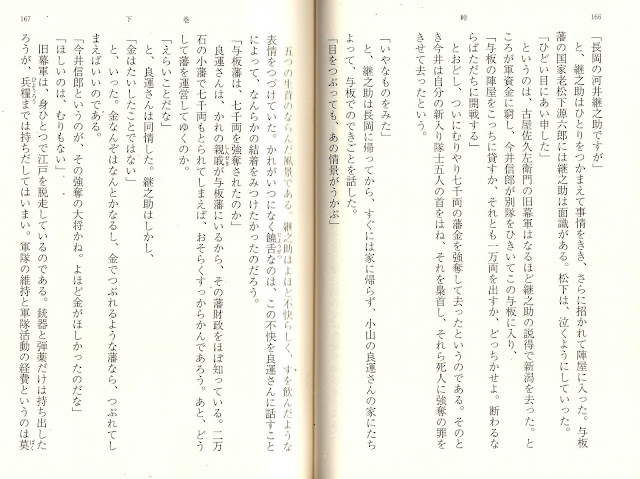 166
峠
「長岡の河井継之助ですが」
と、継之助はひとりをつかまえて事情をきき、さらに招かれて陣屋に入った。与板
藩の国家老松下源六郎には面識がある。松下は、泣くようにしていった。
「ひどい目にあい申した」
というのは、古屋佐久左衛門の旧幕軍はなるほど継之助の説得で新潟を去った。と
ころが軍資金に窮し、今井信郎が別隊をひきいてこの与板に入り、
「与板の陣屋をこっちに貸すか、それとも一万両を出すか、どっちかせよ。断わるな
らばただちに開戦する」
とおどし、ついにむりやり七千両の藩金を強奪して去ったというのである。そのと
き今井は自分の新入り隊士五人の首をはね、それを梟首し、それら死人に強奪の罪を
きせて去ったという。
「いやなものをみた」
と、継之助は長岡に帰ってから、すぐには家に帰らず、小山の良運さんの家にたち
よって、与板でのできごとを話した。
「目をつぶっても、あの情景がうかぶ」
167
下巻
五つの生首のならんだ風景である。継之助はよほど不快らしく、すを飲んだような
表情をつづけていた。かれがいつになく饒舌なのは、この不快を良運さんに話すこと
によって、なんらかの結着をみつけたかったのだろう。
「与板藩は、七千両を強奪されたのか」
良運さんは、かれの親戚が与板藩にいるから、その藩財政をほぼ知っている。二万
石の小藩で七千両もとられてしまえば、おそらくすっからかんであろう。あと、どう
して藩を運営してゆくのか。
「えらいことだな」
と、良運さんは同情した。継之助はしかし、
「金はたいしたことではない」
と、いった。金なんぞはなんとかなるし、金でつぶれるような藩なら、つぶれてし
まえばいいのである。
「今井信郎というのが、その強奪の大将かね。よほど金がほしかったのだな」
「ほしいのは、むりもない」
旧幕軍は、身ひとつで江戸を脱走しているのである。銃器と弾薬だけは持ち出した
ろうが、兵糧までは持ちだしてはいまい。軍隊の維持と軍隊活動の経費というのは莫